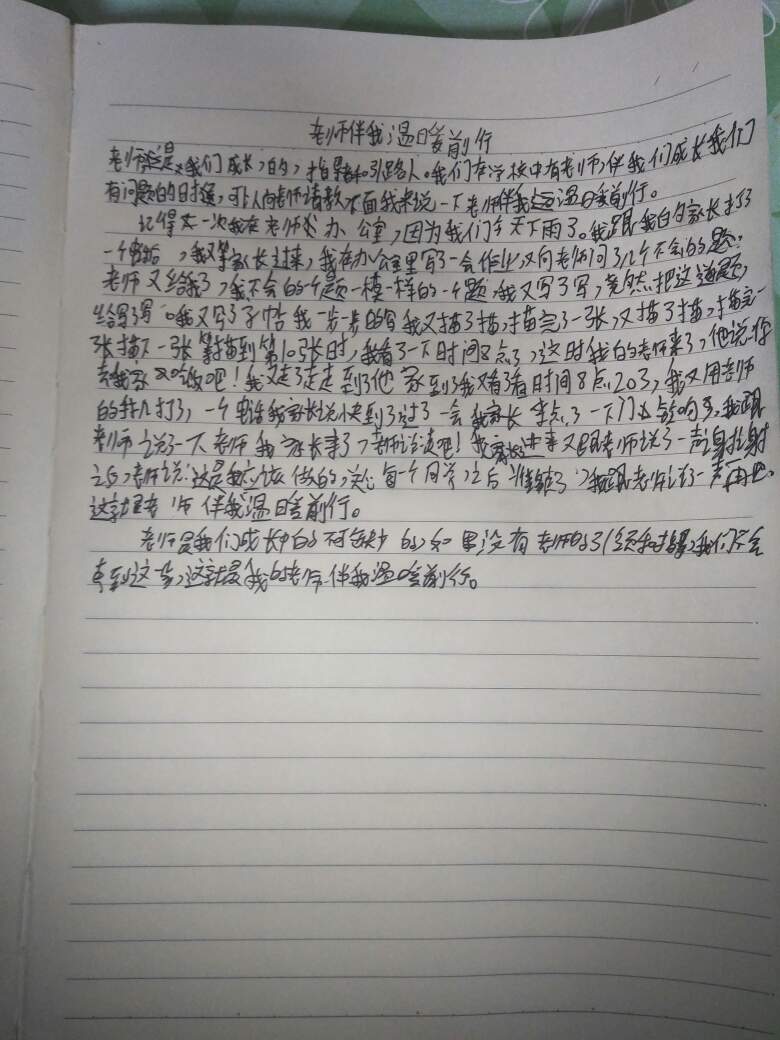 老师伴我温暖前行
老师是我们成长的,指导和引路人。我们在学校中有老师,伴我们成长我们
有问题的时候,可以向老师请教下面我来说一下老师伴我温暖前行。
记得有一次我在老师办公室,因为我们今天下雨了。我跟我的家长打了
一个电话,我又等家长过来,我在办公室里写了一会作业,又向老师问了几个不会的题,
老师又给我了,我不会的个题一模一样的一个题,我又写了写,竟然把这道题,
给写了写。我又写了字帖我一步一步的写我又描了描,描完了一张,又描了描,描完一
张描下一张等描到第10张时,我看了一下时间8点了,这时我的老师来了,他说你
去我家吃饭吧!我又走了走走到了他家到了我又看了看时间8点20了,我又用老师
的手机打了,一个电话我家长说快到了过了一会我家长来点了一下门铃响了,我跟
老师说了一下老师我家长来了,老师说走吧!我家长进来又跟老师说了一声谢谢
之后,老师说:这是我应该做的,关心每一个同学,之后,我跟老师说了一声再也,
这就是老师伴我温暖前行。
老师是我们成长中的不可缺少的,如果没有老师的引领和指导,我们不会
来到这些,这就是我的老师伴我温暖前行。